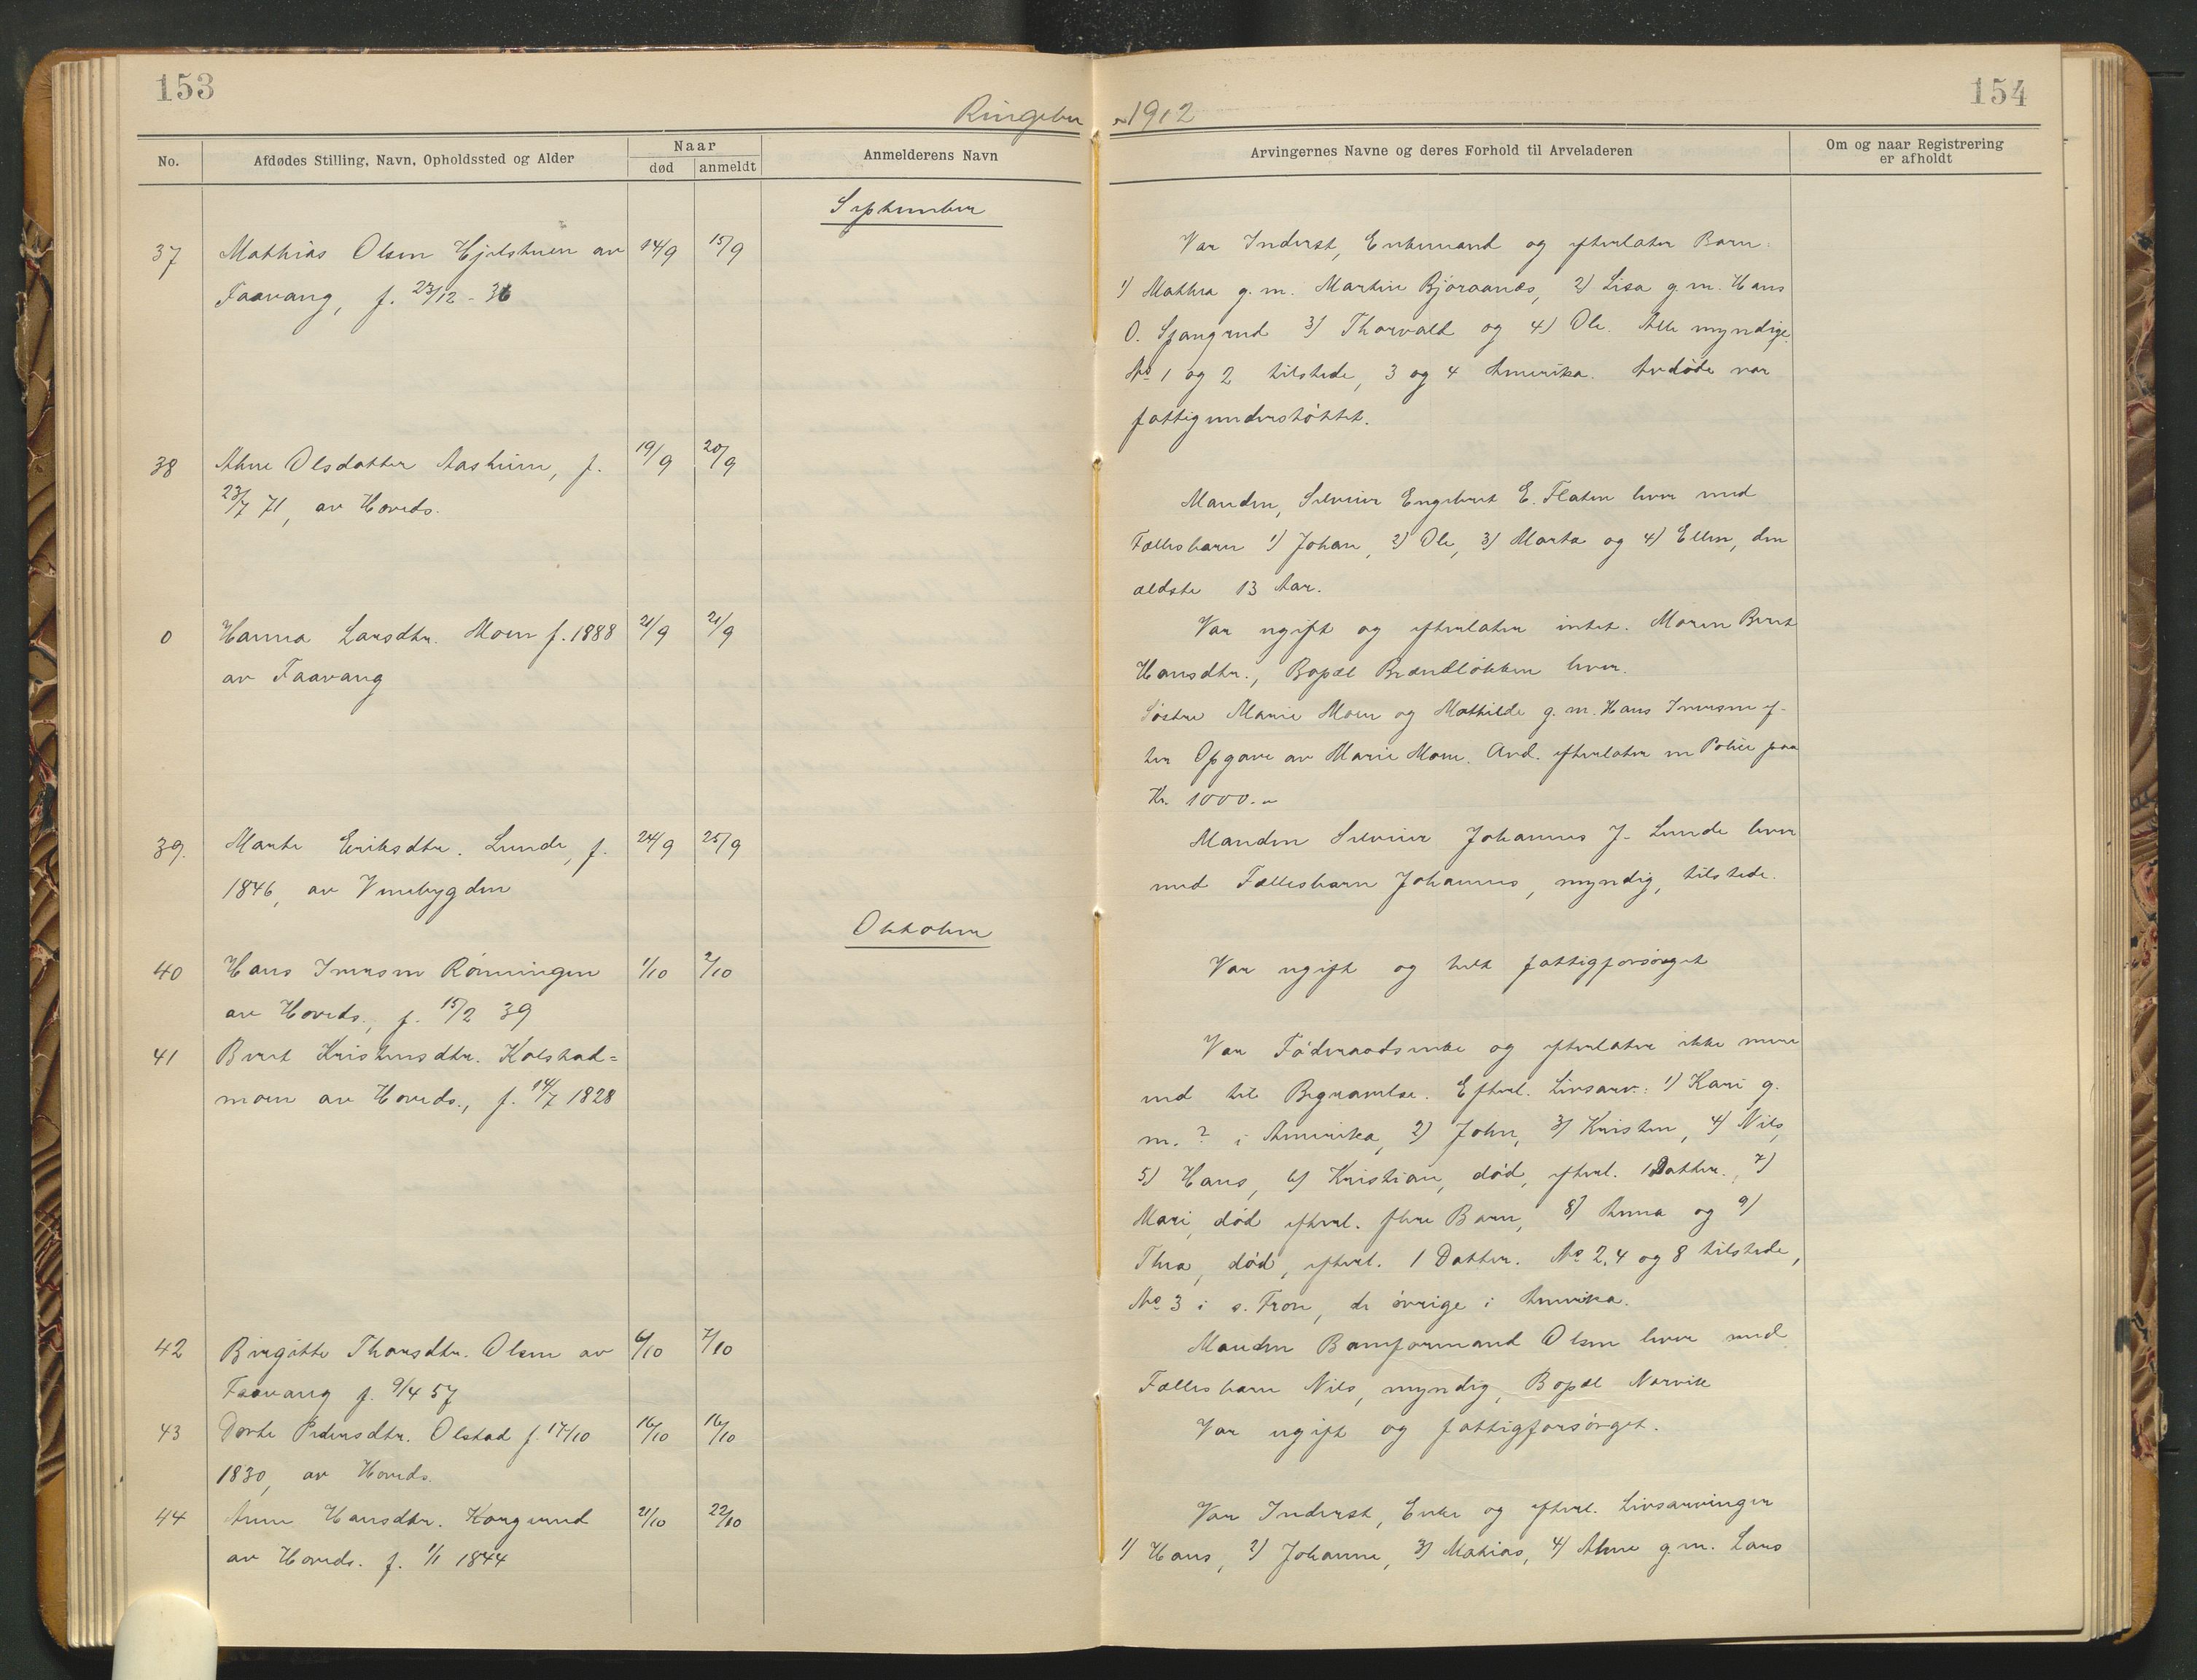 153
154
Ringebu 1912
No.
Afdødes Stilling, Navn, Opholdssted og Alder
Naar
død
anmeldt
Anmelderens Navn
Arvingernes Navne og deres Forhold til Arveladeren
Om og naar Registrering
er afholdt
September
37 Mathias Olsen Hjelstuen av 14/9 15/9
Faavang, f. 23/12 - 36
Var Inderst, Enkemand og efterlater Barn:
1) Mathea g. m. Martin Bjøraanes, 2) Lisa g. m. Hans
O. Spangrud 3) Thorvald og 4) Ole. Alle myndige.
No 1 og 2 tilstede, 3 og 4 Amerika. Avdøde var
fattigunderstøttet.
38 Ahne Olsdatter Aasheim, f. 19/9 20/9
23/7 71, av Hoveds.
Manden, Selveier Engebret E. Flaten lever med
Fællesbarn 1) Johan, 2) Ole, 3) Marta og 4) Ellen, den
ældste 13 Aar.
0 Hanna Larsdtr. Moen f. 1888 21/9 21/9
av Faavang
Var ugift og efterlater intet. Moren Berit
Hansdtr., Bopæl Brændløkken lever.
Søstre Marie Moen og Mathilde g. m. Hans Iversen ef-
ter Opgave av Marie Moen. Avd. efterlater en Police paa
Kr. 1000.-
39. Marte Eriksdtr. Lunde, f. 24/9 25/9
1846, av Venebygden
Manden Selveier Johannes J. Lunde lever
med Fællesbarn Johannes, myndig, tilstede.
Oktober
40 Hans Iversen Rønningen 1/10 2/10
av Hoveds., f. 15/2 39
Var ugift og helt fattigforsørget
41 Berit Kristensdtr. Kolstad=
moen av Hoveds., f. 14/7 1828
Var Føderaadsenke og efterlater ikke mere
end til Begravelse. Efterl. Livsarv.: 1) Kari g.
m. ? i Amerika, 2) John, 3) Kristen, 4) Nils,
5) Hans, 6) Kristian, død, efterl. 1 Datter., 7)
Mari, død efterl. flere Barn, 8) Anna og 9)
Thea, død, efterl. 1 Datter. No 2, 4 og 8 tilstede,
No 3 i s. Fron, de øvrige i Amerika.
42 Birgitte Thorsdtr. Olsen av 6/10 7/10
Faavang f. 9/4 57
Manden Banformand Olsen lever med
Fællesbarn Nils, myndig, Bopæl Narvik
43 Dorte Pedersdtr. Olstad f. 17/10 16/10 16/10
1830, av Hoveds.
Var ugift og fattigforsørget.
44 Anne Hansdtr. Korgerud 21/10 22/10
av Hoveds. f. 1/1 1844
Var Inderst, Enke og efterl. Livsarvinger
1) Hans, 2) Johanne, 3) Matias, 4) Ahne g. m. Lars